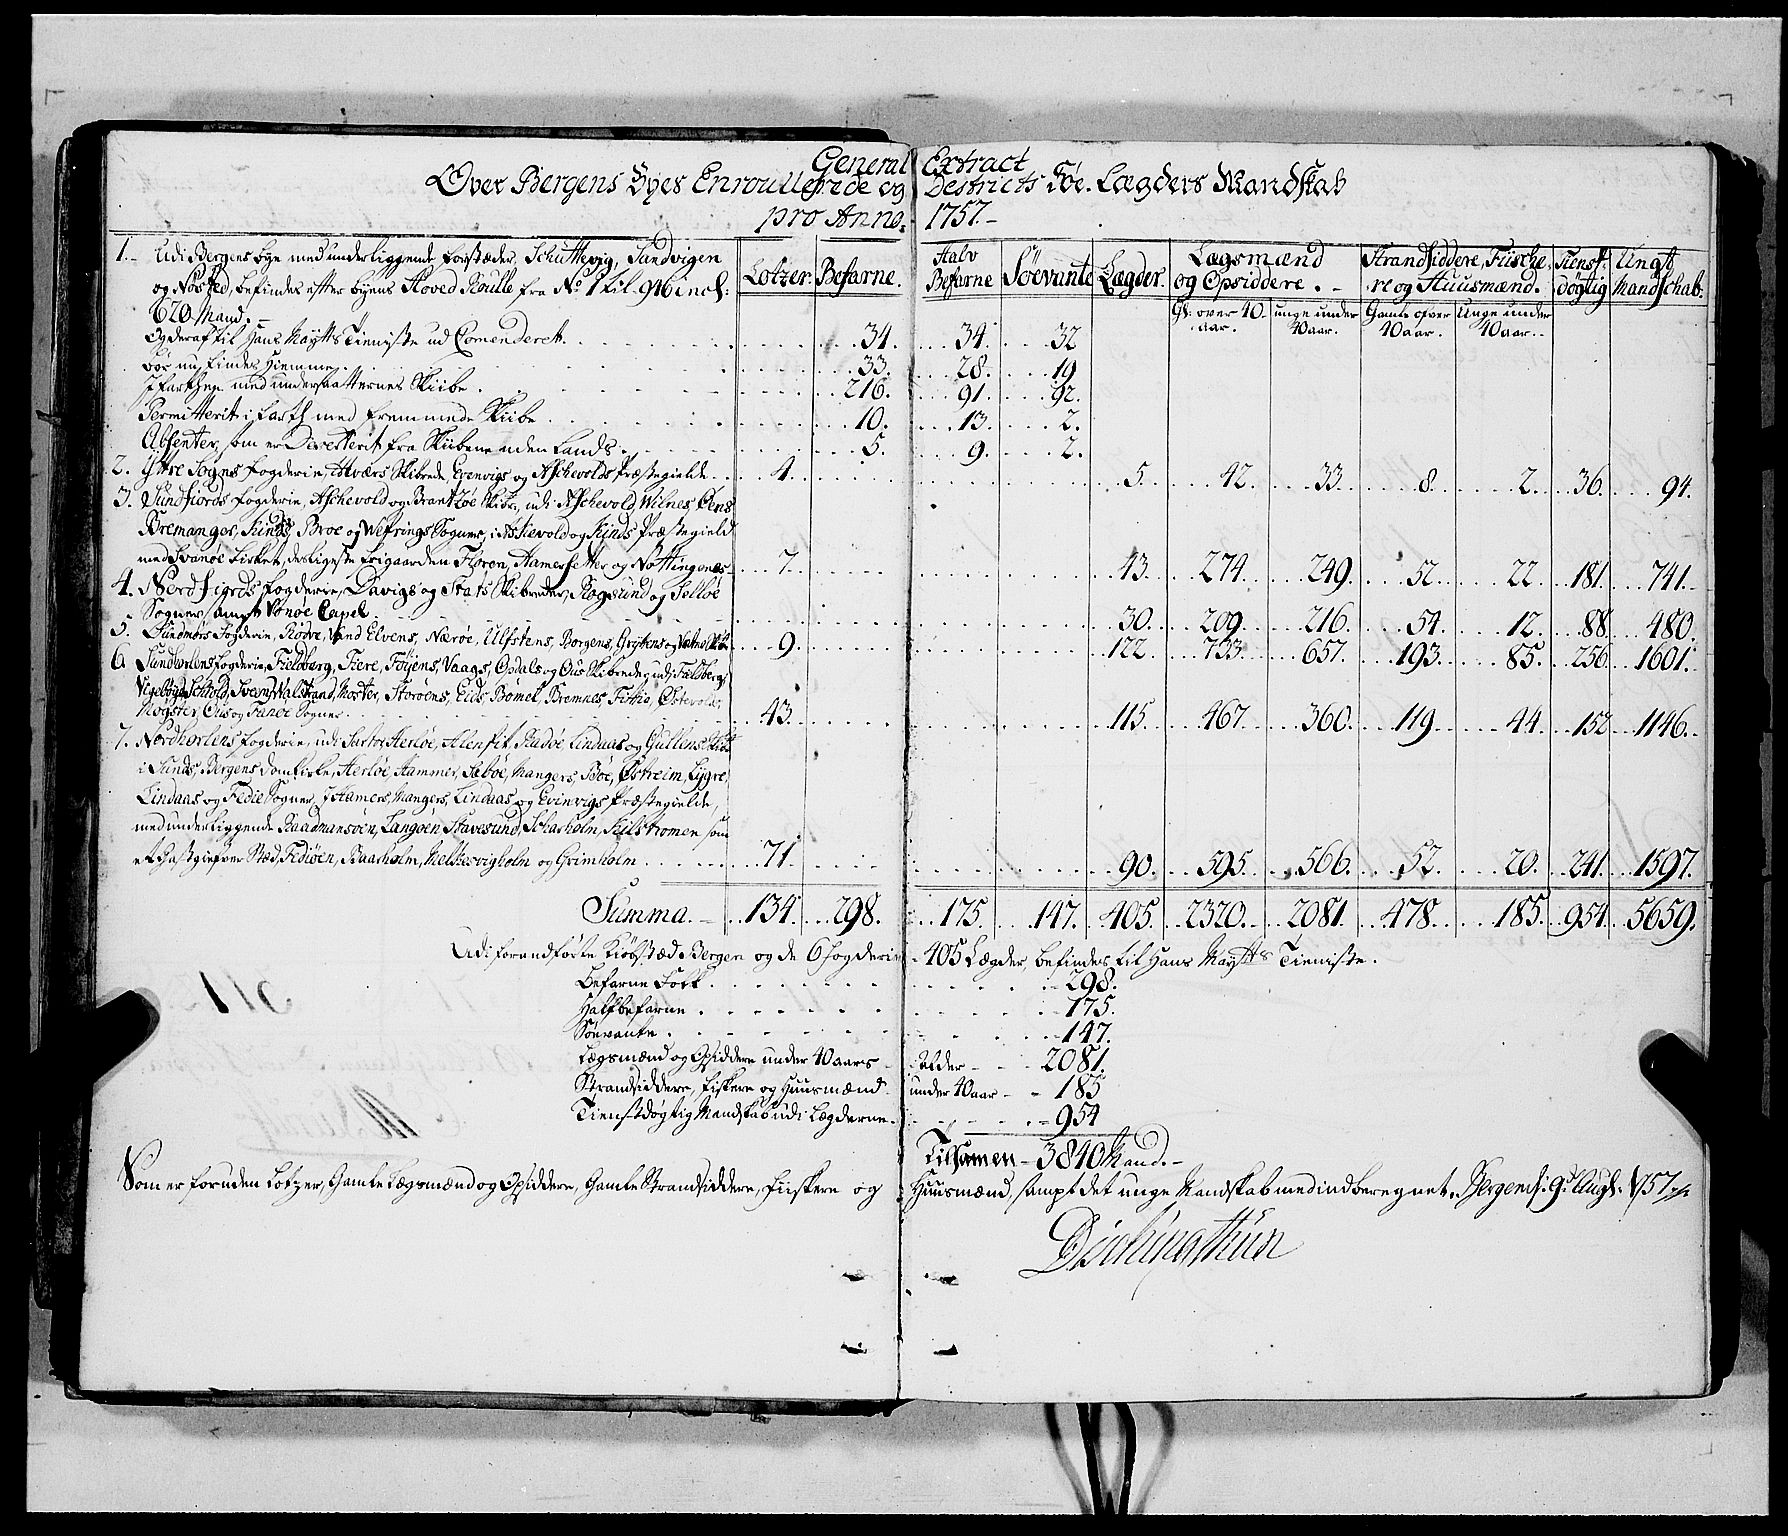 General Extract
Over Bergens Byes Enroullerede og Destricts Søe-Lægders Mandskab
pro Anno. 1757.
Lotzer. Befarne. Halv Befarne Søevante Lægder. Lægsmænd og Opsiddere. Strandsiddere, Fiskere og Huusmænd. Tienstdøgtig Ungt Mandschab.
Gl: over 40 aar. unge under 40 aar. Gamle over 40 aar. Unge under 40 aar.
1. Udi Bergens bye med underliggende forstæder, Schuttevig, Sandvigen
og Nøsted, befindes efter byens Hoved Roulle fra No 1 til 946 incl:
620 Mand.
Og deraf til Hans Maytts Tieniste ud Comenderet 34. 34. 32
bør nu findes hiemme 33. 28. 19
I farthen med undersaatternes Skiibe 216. 91. 92.
Permitterit i farth med fremmede Skiibe 10. 13. 2.
Absenter, som er Deserterit fra Skibene uden Lands 5. 9. 2.
2. Yttre Sogns fogderie, Evenvigs og Aschevolds Præstegielde 4. 5. 42 33. 8. 2. 36. 94.
3. Sundfiords fogderie, Aschevold og Brandtzøe Skibr:, udi Aschevold, Wilnes,
Bremanger, Kinds, Broe og Wefrings Sogner, i Askevold og Kinds Præstegield
med Svanøe Kirke, desligeste frigaarden Florøn, og Nottingenæs 7. 43. 274. 249. 52 22. 181. 741.
4. Nordfiords fogderie, Davigs og Stats Skibreder, Rogsund og Selløe
Sogner, sampt Capel. 30. 209. 216. 54. 12. 88. 480.
5. Sundmørs fogderie, Rødve, Vand Elvens, Nærøe, Ulfstens, Borgens, 9. 122. 733. 657. 193. 85. 256. 1601.
6. Sundhorlens fogderie, Fieldberg, Fiere, Føyens, Vaags, Opdals og Ous Skibreder, udi Fieldbergs,
Valestrand, Moster, Storøens, Eids, Bømel, Bremnes, Fittie, Østevold,
Møgster, Ous og Fanøe Sogner. 43. 115. 467. 360. 119. 44. 152 1146.
7. Nordhorlens fogderie, udi Sartor, Herløe, Alenfit, Radøe, Lindaas og Gullens Skibr:
i Sunds, Bergens Domkirke, Herløe, Hammer, Sæbøe, Mangers, Bøe, Østreim, Lygre,
Lindaas og Fedie Sogner, I Hamers, Mangers, Lindaas og Evinvigs Præstegielde,
med underliggende Raadmansøen, Langøen, Stavesund, Scharholm, Kilstromen som
et Gastgiefver Stæd, Fediøen, Baarholm, og Grimholm 71. 90. 595. 566. 52. 20. 241. 1597.
Summa. 134. 298. 175. 147. 405. 2320. 2081. 478. 185. 954. 5659.
Udi forandførte Kiøbstæd Bergen og de 6 fogderier 405 Lægder, befindes til Hans Maytts Tieniste.
Befarne Folk 298.
Halfbefarne 175.
Søevante 147.
Lægsmænd og Opsiddere under 40 aars Alder 2081.
Strandsiddere, fiskere og Huusmænd under 40 aar 185
Tienstdøgtig Mandskab udi Lægderne 954
Tilsamen 3840 Mand.
Som er foruden Lotzer, Gamle Lægsmænd og Opsiddere, Gamle Strandsiddere, fiskere og Huusmænd, sampt det unge Mandskab med indberegnet. Bergen d: 9de Augt: 1757